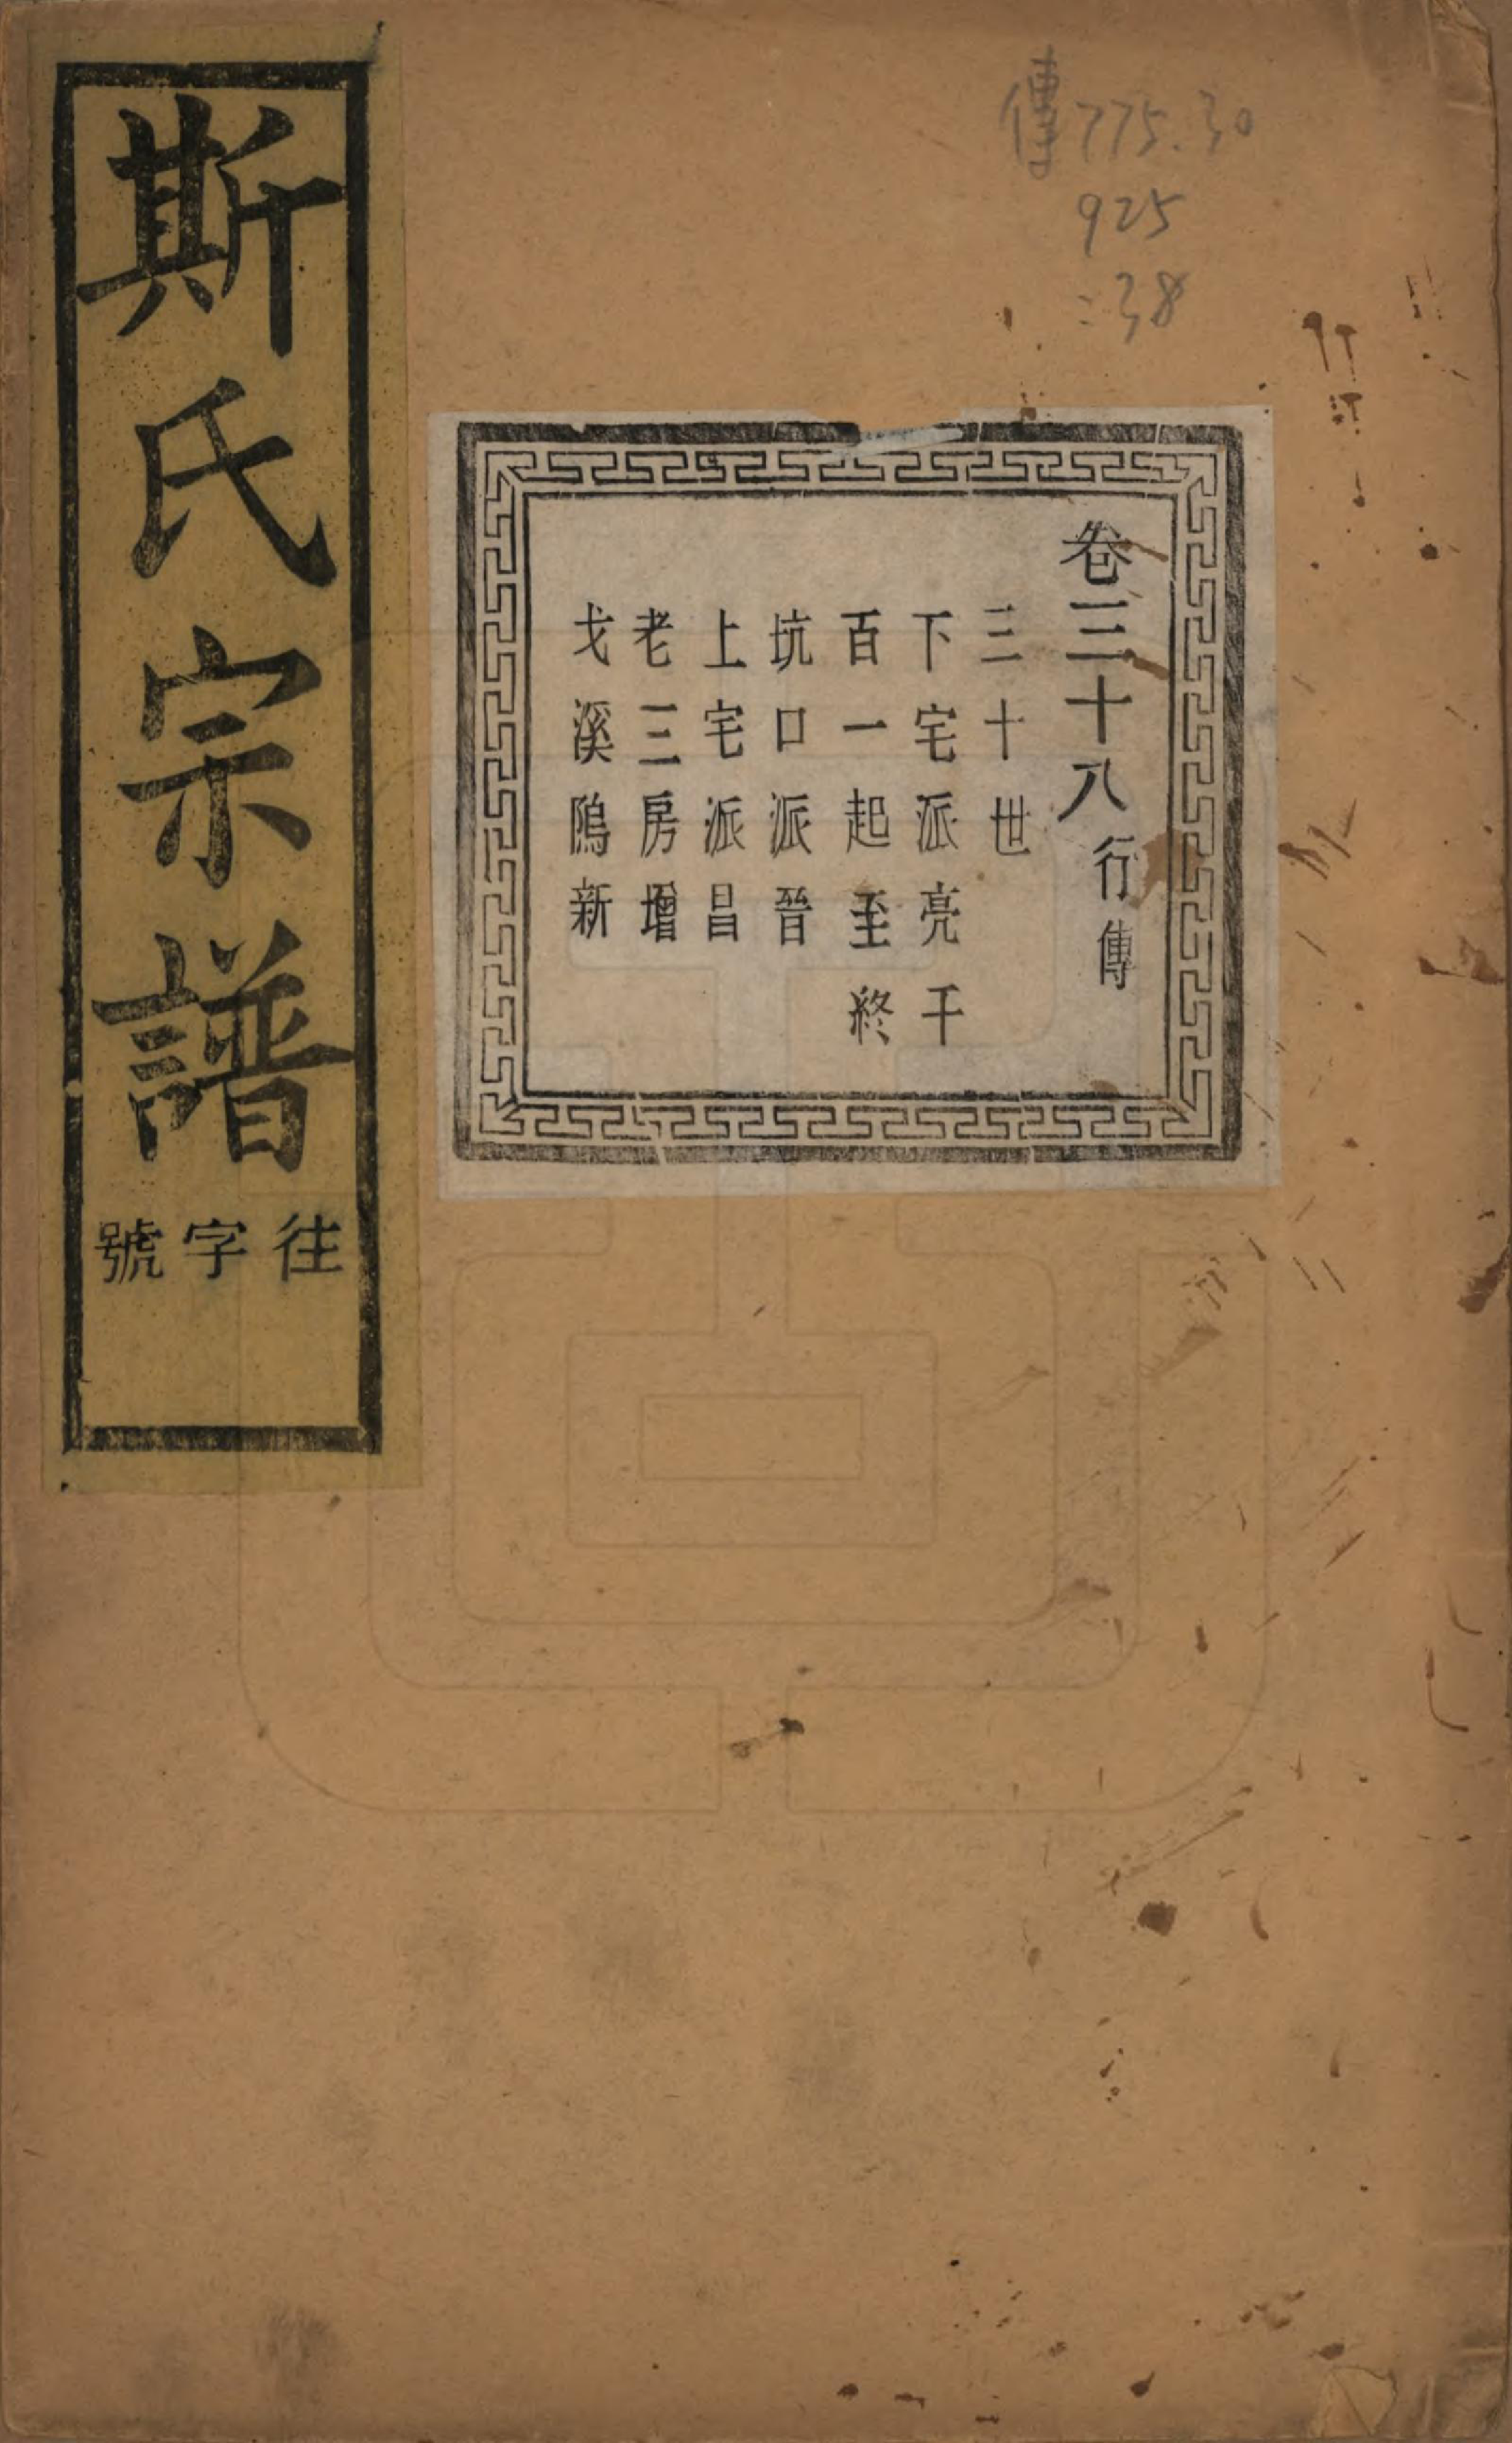 斯氏宗譜
往字號
傳775.30
925
:38
卷三十八行傳
三十世
下宅派亮千
百一起至終
坑口派晉
上宅派昌
老三房增
戈溪隖新